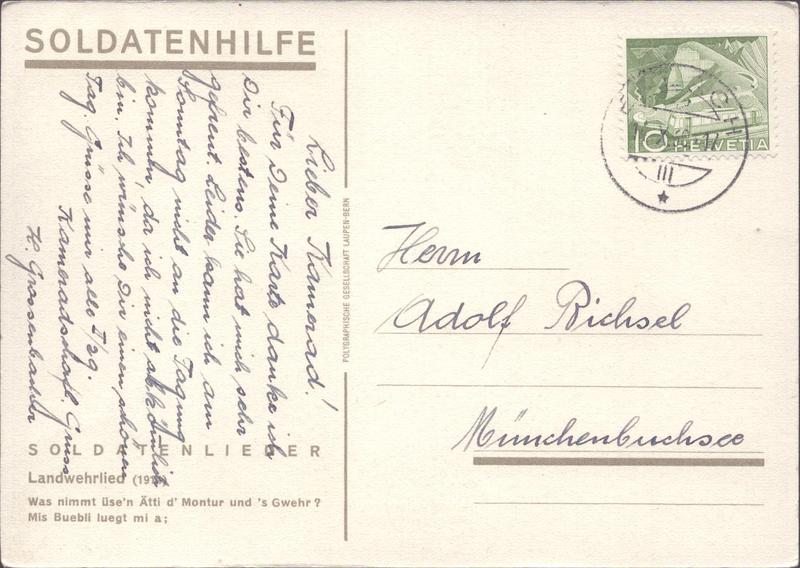 SOLDATENHILFE
Lieber Kamerad!
Für Deine Karte danke ich
Dir bestens. Sie hat mich sehr
gefreut. Leider kann ich am
Sonntag nicht an die Tagung
kommen, da ich nicht
bin. Ich wünsche Dir einen schönen
Tag. Grüsse mir alle I/29.
Kameradschaftl. Gruss
H. Grossenbacher
SOLDATENLIEDER
Landwehrlied
Was nimmt üse'n Ätti d' Montur und 's Gwehr?
Mis Buebli luegt mi a;
POLYGRAPHISCHE GESELLSCHAFT LAUPEN-BERN
10 HELVETIA
III
Herrn
Adolf Bichsel
Münchenbuchsee